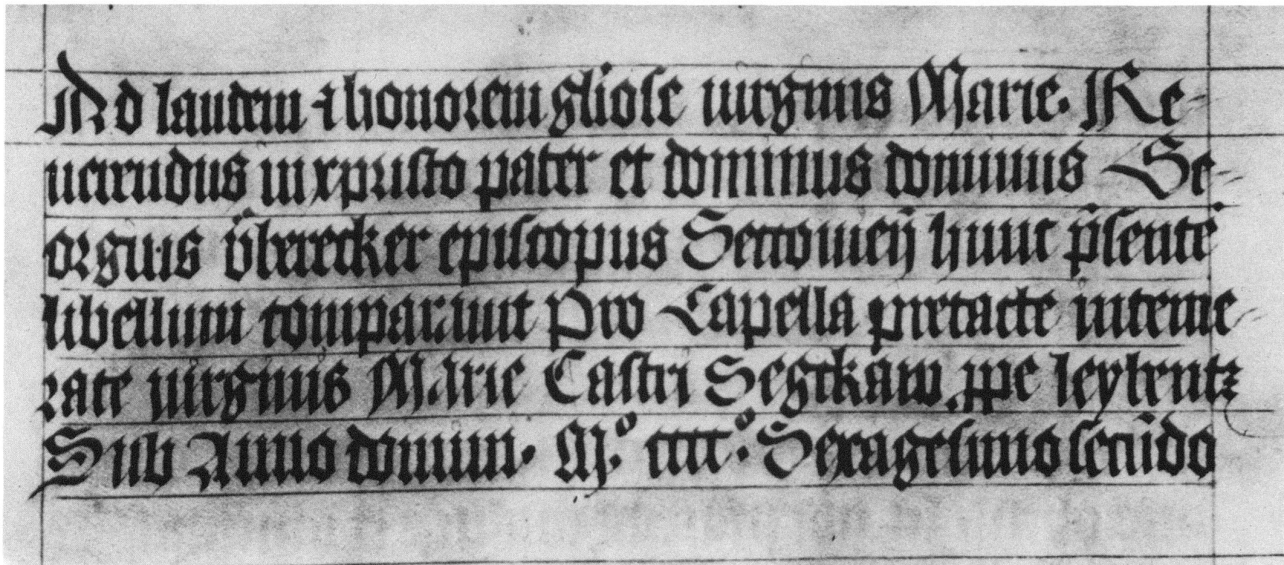 Ad laudem ⁊ honorem gliose uirginis Marie. Re-
uerendus in xpristo pater et dominus dominus Ge-
orgius v̈berecker episcopus Seccouieñ hunc p̄sentē
libellum comparauit Pro Capella pretacte inteme-
rate uirginis Marie Castri Segckaw ꝓpe leybentz
Sub Anno domini. Mͦ. ccccͦ. Sexagesimo secūdo